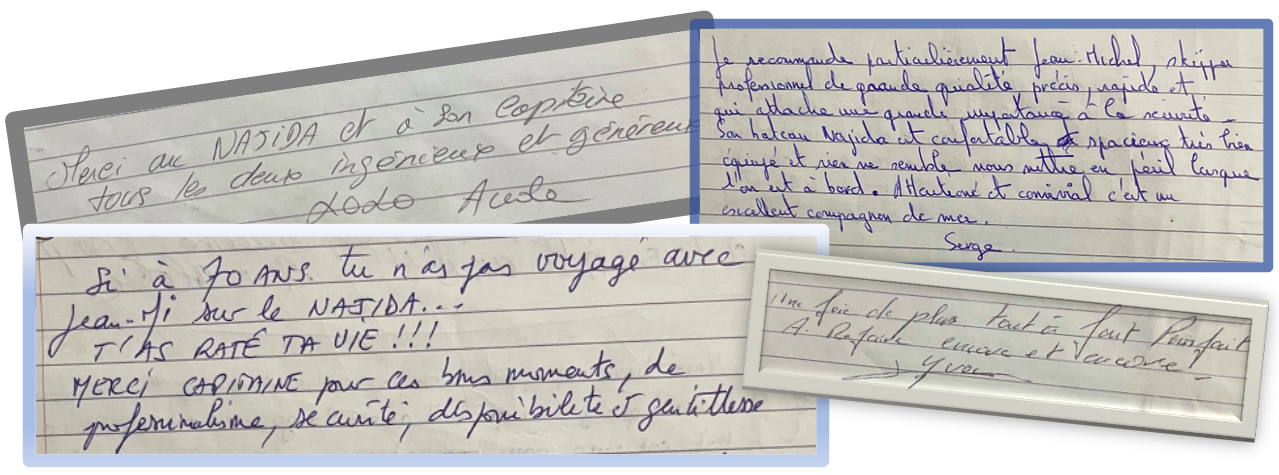 Merci au NAJIDA et à son Capitaine
tous les deux ingénieux et généreux
LoLo
Je recommande particulièrement Jean-Michel, skipper
professionnel de grande qualité précis, rapide et
qui attache une grande importance à la sécurité -
Son bateau Najida est confortable, spacieux très bien
équipé et rien ne semble nous mettre en péril lorsque
l'on est à bord. Attentionné et convivial c'est un
excellent compagnon de mer.
Serge
Si à 70 ANS tu n'as pas voyagé avec
Jean-Mi sur le NAJIDA...
T'AS RATÉ TA VIE !!!
MERCI CAPITAINE pour ces bons moments, de
professionalisme, sécurité, disponibilité et gentillesse
Une fois de plus tout à fait Parfait
A Refaire encore et encore !
Yvon